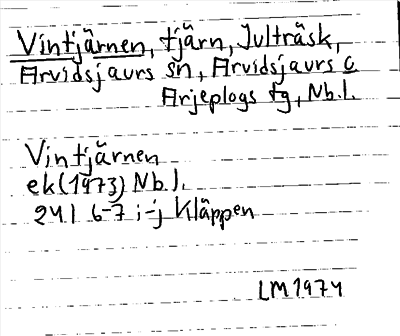 Vintjärnen, tjärn, Julträsk,
Arvidsjaurs sn, Arvidsjaurs o
Arjeplogs tg, Nb.l.
Vintjärnen
ek(1973) Nb.l.
24I 6-7 i-j Kläppen
LM1974